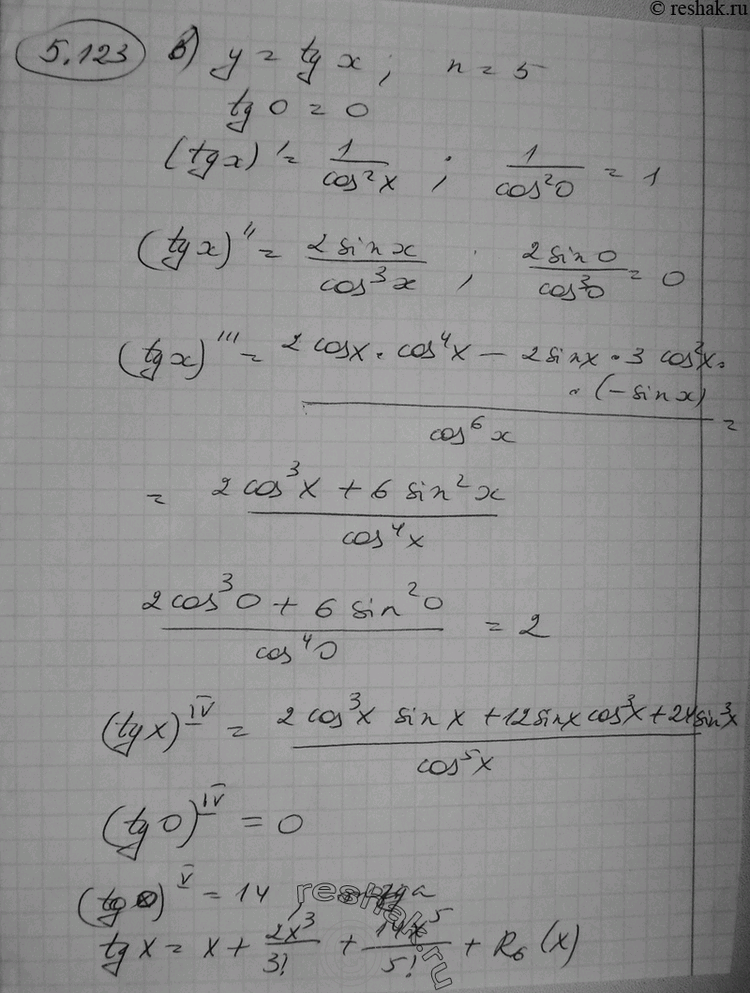 © reshak.ru
5.123 в) y = tg x ; n = 5
tg 0 = 0
(tg x)' = 1/cos²x ; 1/cos²0 = 1
(tg x)'' = 2 sin x/cos³x ; 2 sin 0/cos³0 = 0
(tg x)''' = (2 cos x · cos⁴x − 2 sin x · 3 cos²x ·
· (− sin x))/cos⁶x =
= (2 cos³x + 6 sin²x)/cos⁴x
(2 cos³0 + 6 sin²0)/cos⁴0 = 2
(tg x)^IV = (2 cos³x sin x + 12 sin x cos³x + 24 sin³x)/cos⁵x
(tg 0)^IV = 0
(tg 0)^V = 14
tg x = x + 2x³/3! + 14x⁵/5! + R₆(x)
reshak.ru